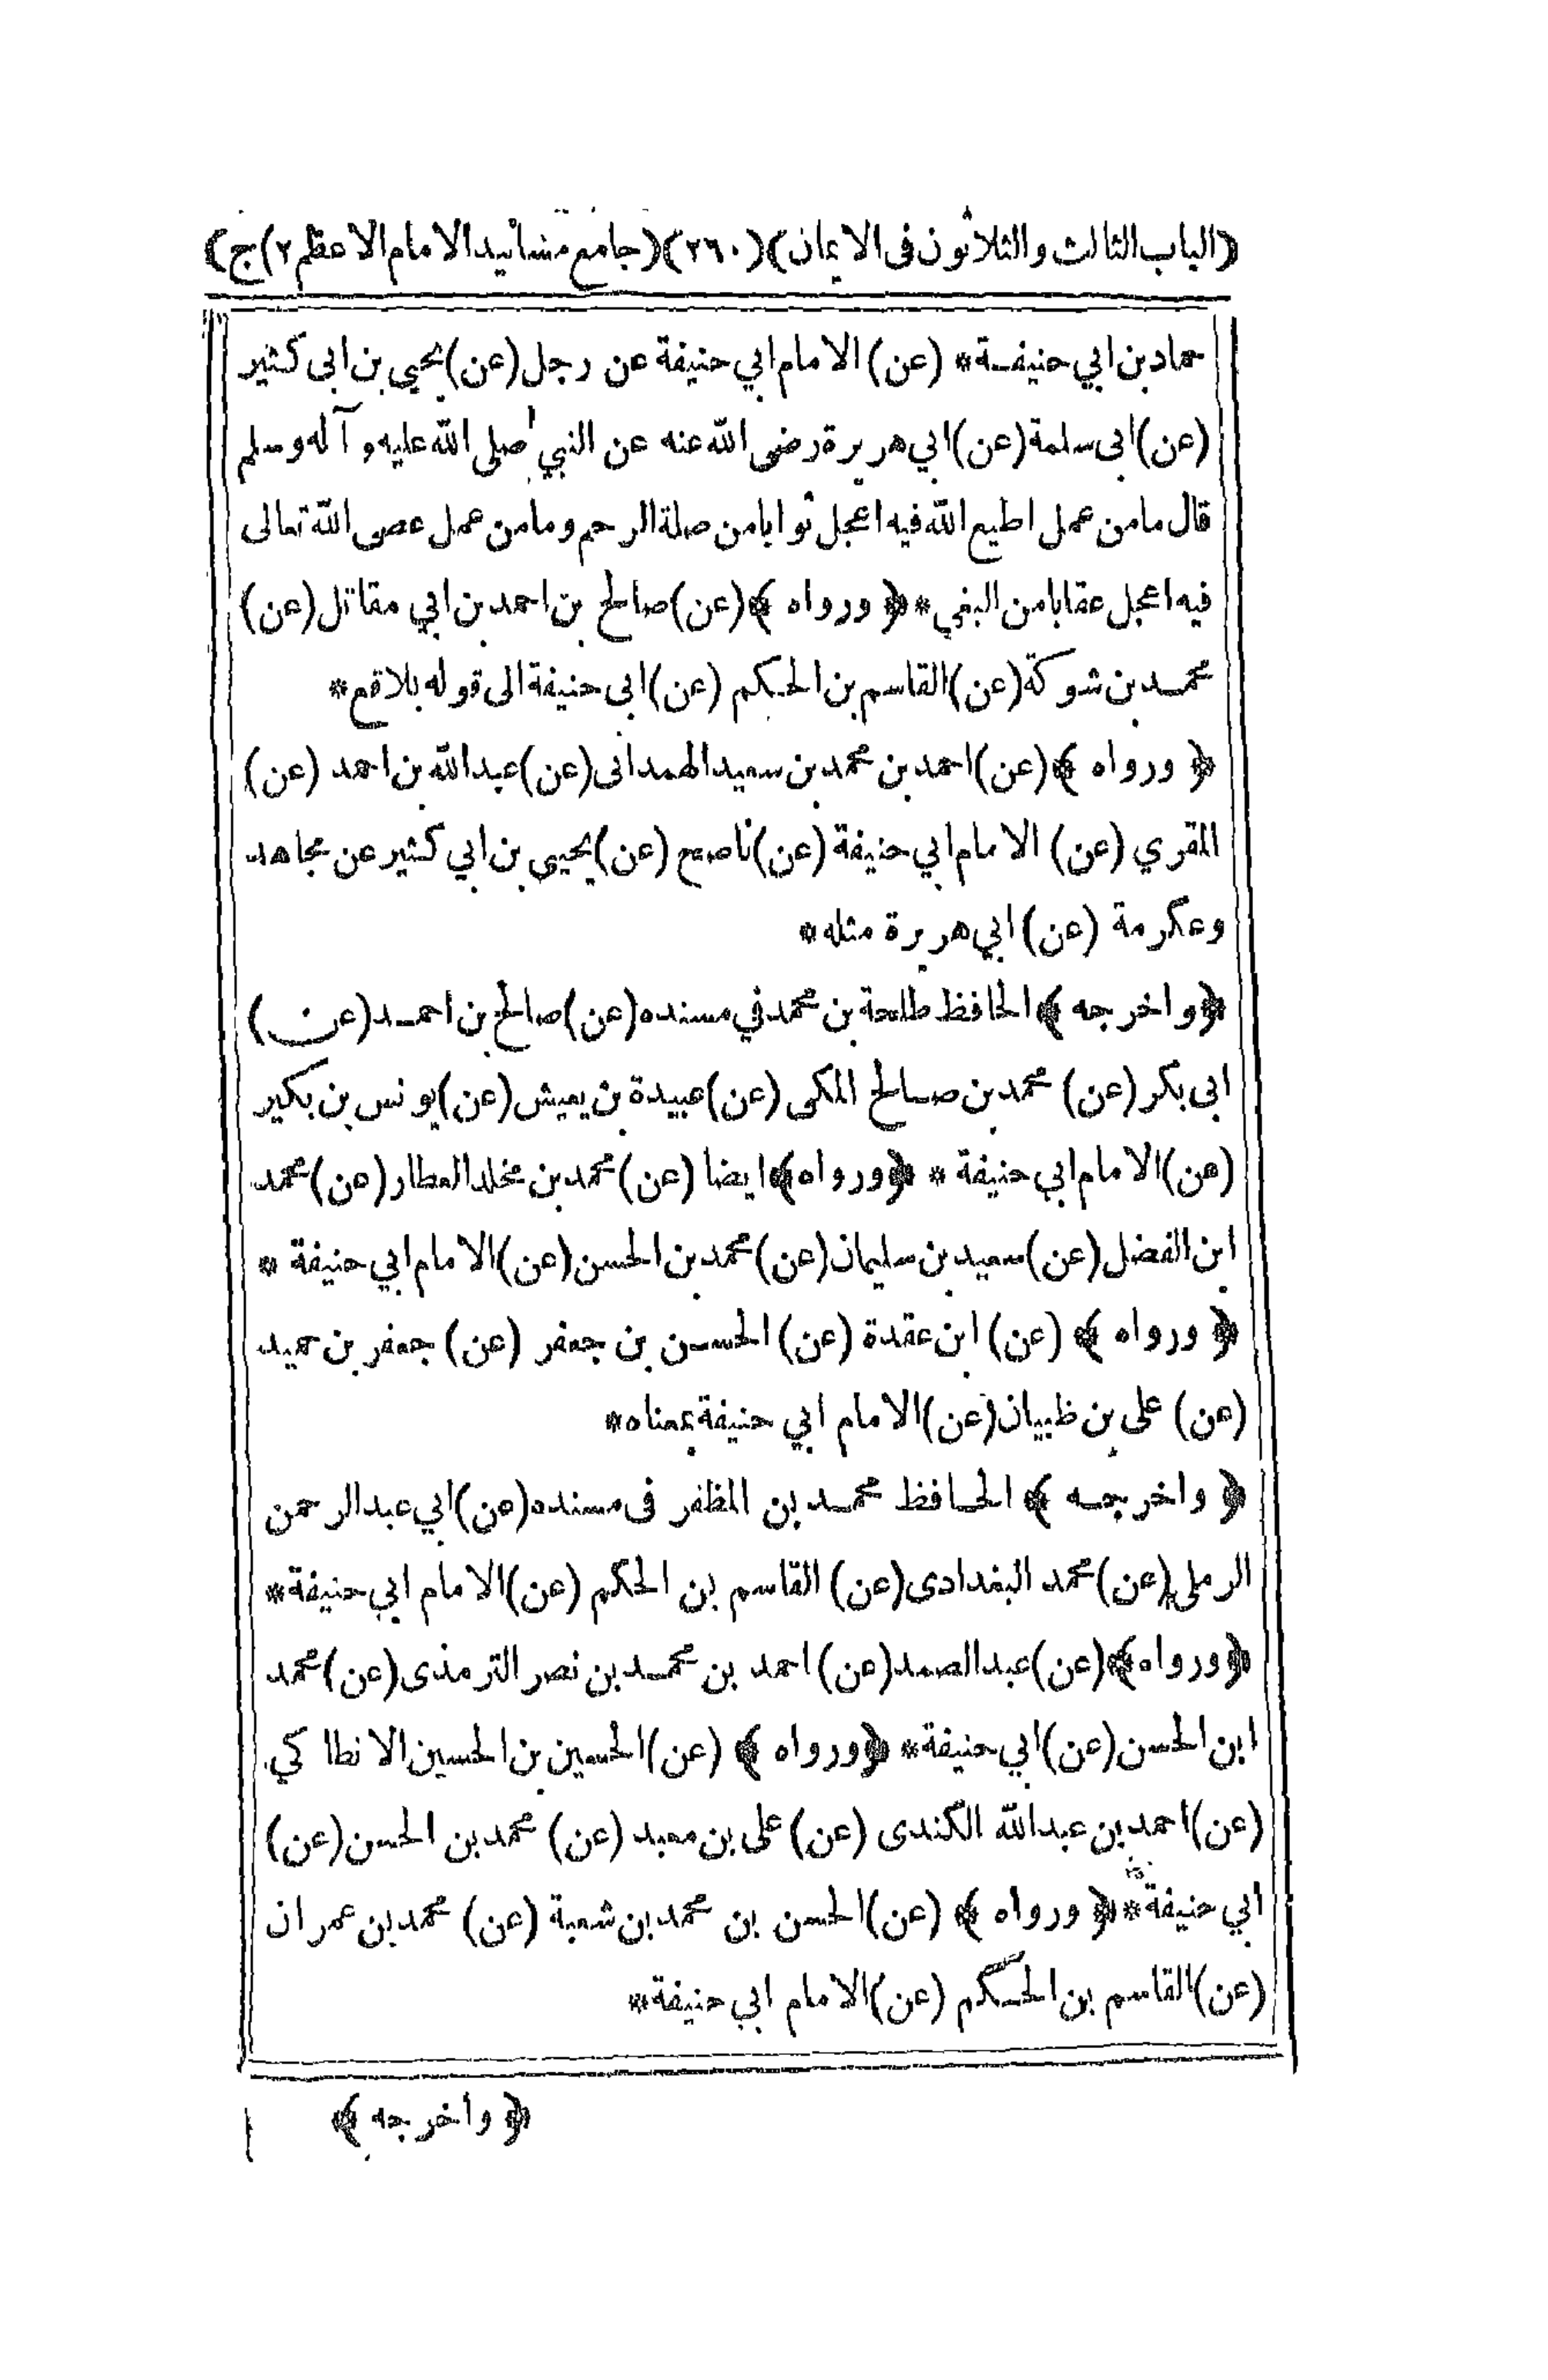 (الباب الثالث والثلاثون فى الايمان) (٢٦٠) (جامع مسانيد الامام الاعظم ٢) ج)
حماد بن ابي حنيفة * (عن) الامام ابي حنيفة عن رجل (عن) يحيى بن ابى كثير
(عن) ابى سلمة (عن) ابي هريرة رضى الله عنه عن النبي صلى الله عليه و آله وسلم
قال ما من عمل اطيع الله فيه اعجل ثوابا من صلة الرحم وما من عمل عصى الله تعالى
فيه اعجل عقابا من البغي * ﴿ ورواه ﴾ (عن) صالح بن احمد بن ابي مقاتل (عن)
محمد بن شوكة (عن) القاسم بن الحكم (عن) ابى حنيفة الى قوله بلاقع *
﴿ ورواه ﴾ (عن) احمد بن محمد بن سعيد الهمدانى (عن) عبد الله بن احمد (عن)
المقري (عن) الامام ابي حنيفة (عن) ناصح (عن) يحيى بن ابي كثير عن مجاهد
وعكرمة (عن) ابي هريرة مثله *
﴿ واخرجه ﴾ الحافظ طلحة بن محمد في مسنده (عن) صالح بن احمد (عن)
ابى بكر (عن) محمد بن صالح المكى (عن) عبيدة بن يعيش (عن) يونس بن بكير
(عن) الامام ابي حنيفة * ﴿ ورواه ﴾ ايضا (عن) محمد بن مخلد العطار (عن) محمد
ابن الفضل (عن) سعيد بن سليمان (عن) محمد بن الحسن (عن) الامام ابي حنيفة *
﴿ ورواه ﴾ (عن) ابن عقدة (عن) الحسن بن جعفر (عن) جعفر بن حميد
(عن) على بن ظبيان (عن) الامام ابي حنيفة بمعناه *
﴿ واخرجه ﴾ الحافظ محمد بن المظفر فى مسنده (عن) ابي عبد الرحمن
الرملى (عن) محمد البغدادى (عن) القاسم بن الحكم (عن) الامام ابي حنيفة *
﴿ ورواه ﴾ (عن) عبد الصمد (عن) احمد بن محمد بن نصر الترمذى (عن) محمد
ابن الحسن (عن) ابي حنيفة * ﴿ ورواه ﴾ (عن) الحسين بن الحسين الانطاكي
(عن) احمد بن عبد الله الكندى (عن) على بن معبد (عن) محمد بن الحسن (عن)
ابي حنيفة * ﴿ ورواه ﴾ (عن) الحسن بن محمد بن شعبة (عن) محمد بن عمران
(عن) القاسم بن الحكم (عن) الامام ابي حنيفة *
﴿ واخرجه ﴾